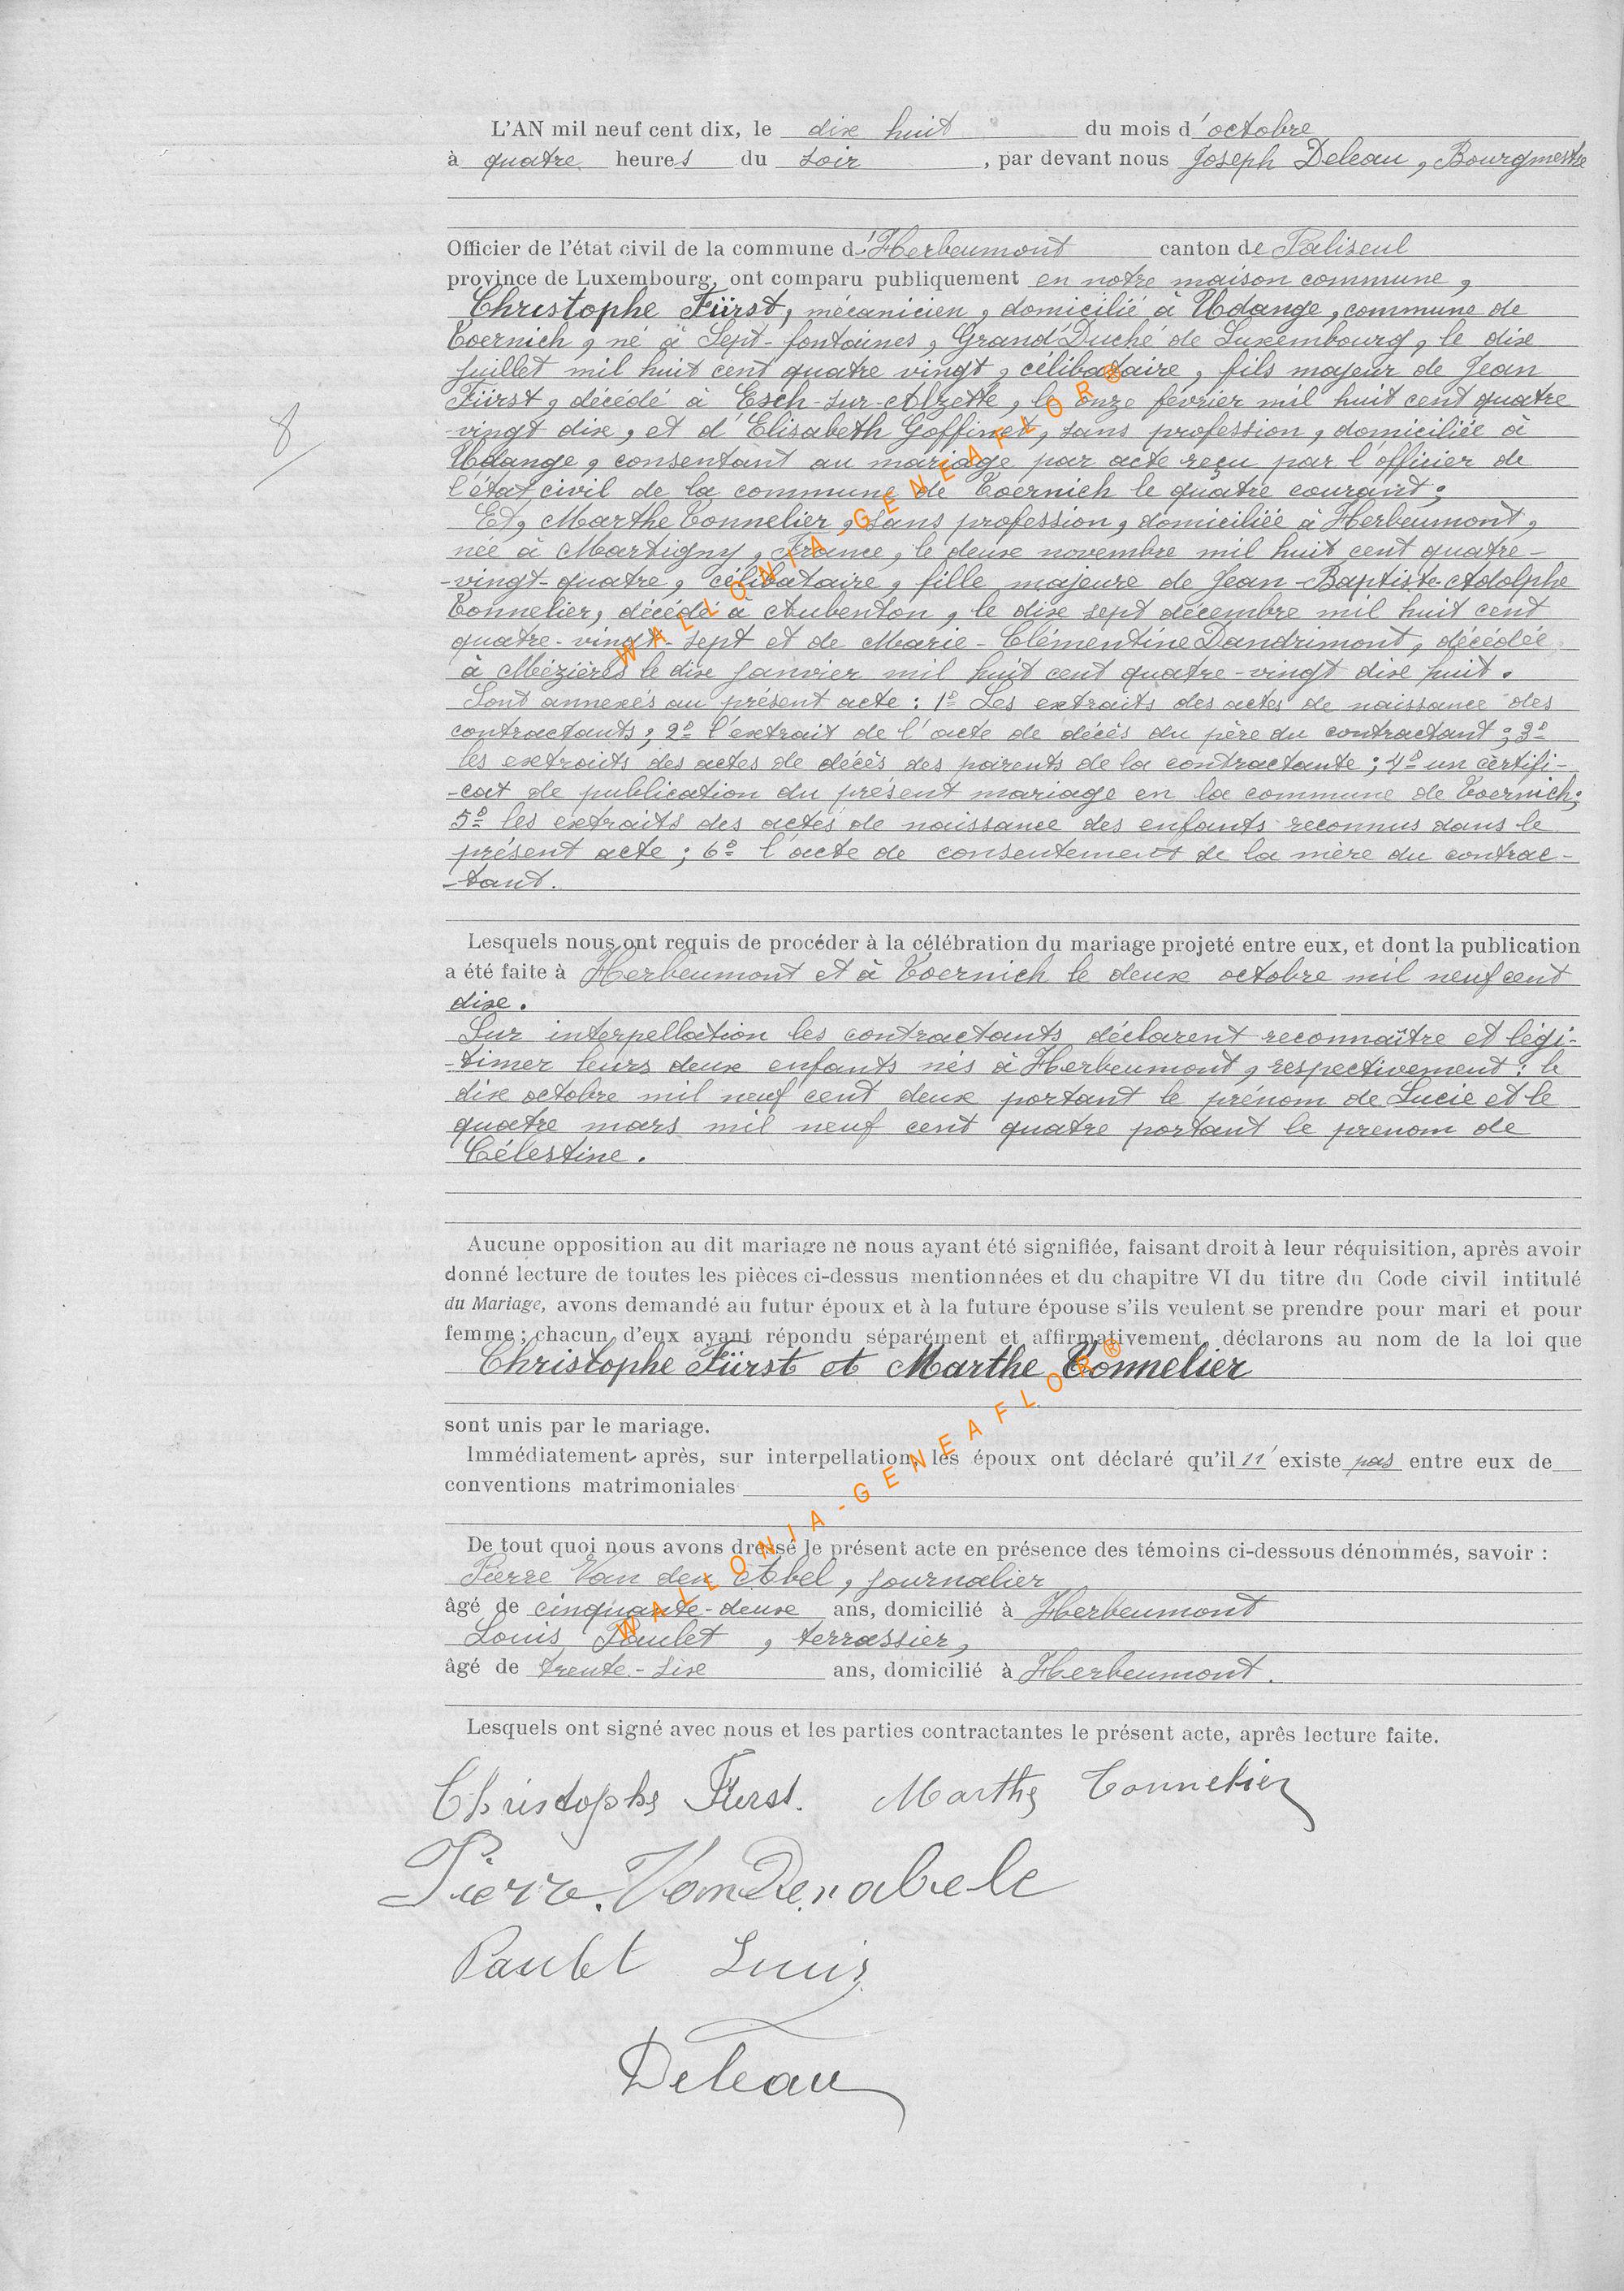 L'AN mil neuf cent dix, le dix huit du mois d'octobre
à quatre heures du soir, par devant nous Joseph Deleau, Bourgmestre
Officier de l'état civil de la commune d'Herbeumont canton de Paliseul
province de Luxembourg, ont comparu publiquement en notre maison commune,
Christophe Fürst, mécanicien, domicilié à Udange, commune de
Toernich, né à Sept-fontaines, Grand Duché de Luxembourg, le dix
juillet mil huit cent quatre vingt, célibataire, fils majeur de Jean
8
Fürst, décédé à Esch-sur-Alzette, le onze février mil huit cent quatre
-vingt dix, et d'Elisabeth Goffinet, sans profession, domiciliée à
Udange, consentant au mariage par acte reçu par l'officier de
l'état civil de la commune de Toernich le quatre courant;
Et, Marthe Tonnelier, sans profession, domiciliée à Herbeumont,
née à Martigny, France, le deux novembre mil huit cent quatre-
-vingt-quatre, célibataire, fille majeure de Jean-Baptiste-Adolphe
Tonnelier, décédé à Aubenton, le dix sept décembre mil huit cent
quatre-vingt-sept et de Marie-Clémentine Dandrimont, décédée
à Mézières le dix janvier mil huit cent quatre-vingt dix huit.
Sont annexés au présent acte : 1º Les extraits des actes de naissance des
contractants; 2º l'extrait de l'acte de décès du père du contractant; 3º
les extraits des actes de décès des parents de la contractante; 4º un certifi-
-cat de publication du présent mariage en la commune de Toernich;
5º les extraits des actes de naissance des enfants reconnus dans le
présent acte; 6º l'acte de consentement de la mère du contrac-
-tant.
Lesquels nous ont requis de procéder à la célébration du mariage projeté entre eux, et dont la publication
a été faite à Herbeumont et à Toernich le deux octobre mil neuf cent
dix.
Sur interpellation les contractants déclarent reconnaître et légi-
-timer leurs deux enfants nés à Herbeumont, respectivement : le
dix octobre mil neuf cent deux portant le prénom de Lucie et le
quatre mars mil neuf cent quatre portant le prenom de
Célestine.
Aucune opposition au dit mariage ne nous ayant été signifiée, faisant droit à leur réquisition, après avoir
donné lecture de toutes les pièces ci-dessus mentionnées et du chapitre VI du titre du Code civil intitulé
du Mariage, avons demandé au futur époux et à la future épouse s'ils veulent se prendre pour mari et pour
femme; chacun d'eux ayant répondu séparément et affirmativement, déclarons au nom de la loi que
Christophe Fürst et Marthe Tonnelier
sont unis par le mariage.
Immédiatement après, sur interpellation, les époux ont déclaré qu'il n'existe pas entre eux de
conventions matrimoniales
De tout quoi nous avons dressé le présent acte en présence des témoins ci-dessous dénommés, savoir :
Pierre Van den Abel, journalier
âgé de cinquante-deux ans, domicilié à Herbeumont
Louis Paulet, terrassier,
âgé de trente-six ans, domicilié à Herbeumont.
Lesquels ont signé avec nous et les parties contractantes le présent acte, après lecture faite.
Christophe Fürst. Marthe Tonnelier
Pierre. VanDenabele
Paulet Louis
Deleau
WALLONIA-GENEAFLOR®
WALLONIA-GENEAFLOR®